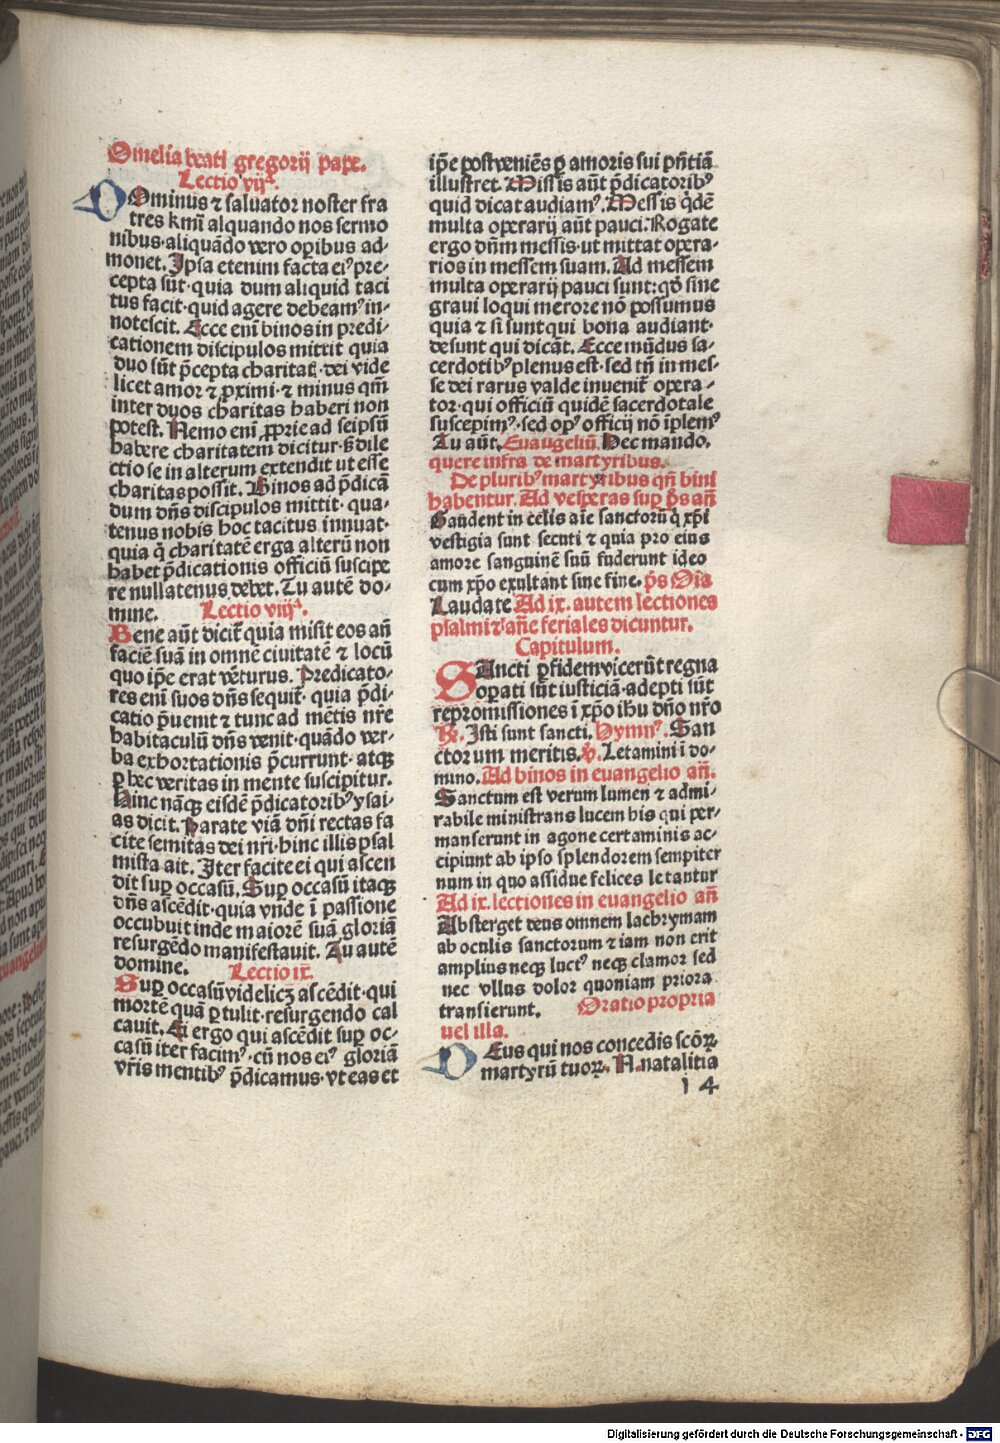 Omelia beati gregorij pape.
Lectio vijᵃ.
DOminus ⁊ saluator noster fra
tres kmi᷑ aliquando nos sermo
nibus·aliquãdo vero oꝑibus ad-
monet. Ipsa etenim facta eiꝰ pre-
cepta sũt·quia dum aliquid taci
tus facit·quid agere debeamꝰ in-
notescit. Ecce eni᷑ binos in predi-
cationem discipulos mittit quia
duo sũt p̃cepta charitat̛·dei vide
licet amor ⁊ ꝓximi·⁊ minus qm̃
inter duos charitas haberi non
potest. Nemo eni᷑ ꝓprie ad seipsũ
habere charitatem dicitur·s̃ dile
ctio se in alterum extendit ut esse
charitas possit. Binos ad p̃dicã
dum dñs discipulos mittit·qua-
tenus nobis hoc tacitus innuat·
quia q̃ charitatẽ erga alterũ non
habet p̃dicationis officiũ suscipe
re nullatenus debet. Tu autẽ do-
mine. Lectio viijᵃ.
Bene aũt dicit̃ quia misit eos añ
faciẽ suã in omnẽ ciuitatẽ ⁊ locũ
quo ip̃e erat vẽturus. Predicato-
res eni᷑ suos dñs sequit̃· quia p̃di-
catio p̃uenit ⁊ tunc ad mẽtis nr̃e
habitaculũ dñs venit·quãdo ver-
ba exhortationis p̃currunt· atqꝫ
ꝑ hec veritas in mente suscipitur.
Hinc nãqꝫ eisdẽ p̃dicatoribꝰ ysai-
as dicit. Parate viã dñi rectas fa
cite semitas dei nr̃i·hinc illis psal
mista ait. Iter facite ei qui ascen
dit suꝑ occasũ. Suꝑ occasũ itaqꝫ
dñs ascẽdit·quia vnde ĩ passione
occubuit inde maiorẽ suã gloriã
resurgẽdo manifestauit. Tu autẽ
domine. Lectio ix.
Suꝑ occasũ videlicꝫ ascẽdit·qui
mortẽ quã ꝑtulit·resurgendo cal
cauit. Ei ergo qui ascẽdit suꝑ oc-
casũ iter facimꝰ·cũ nos eiꝰ gloriã
vr̃is mentibꝰ p̃dicamus·vt eas et
ip̃e post veniẽs ꝑ amoris sui pñtiã
illustret. Missis aũt p̃dicatoribꝰ
quid dicat audiamꝰ. Messis q̃dẽ
multa operarij aũt pauci. Rogate
ergo dñm messis·ut mittat opera-
rios in messem suam. Ad messem
multa operarij pauci sunt:qḋ sine
graui loqui merore nõ possumus
quia ⁊ si sunt qui bona audiant·
desunt qui dicãt. Ecce mũdus sa-
cerdotibꝰ plenus est·sed tñ in mes-
se dei rarus valde inuenit̃ opera-
tor·qui officiũ quidẽ sacerdotale
suscepimꝰ·sed opꝰ officij nõ ĩplemꝰ
Tu aũt. Euangeliũ. Hec mando.
quere infra de martyribus.
De pluribꝰ martyribus qñ bini
habentur. Ad vesperas suꝑ p̃s añ
Gaudent in celis aĩe sanctorũ q̃ xp̃i
vestigia sunt secuti ⁊ quia pro eius
amore sanguinẽ suũ fuderunt ideo
cum xp̃o exultant sine fine. p̃s Oĩa
Laudate Ad ix. autem lectiones
psalmi ⁊ añe feriales dicuntur.
Capitulum.
SAncti ꝑ fidem vicerũt regna
operati sũt iusticiã·adepti sũt
repromissiones ĩ xp̃o ihu dño nr̃o
℞. Isti sunt sancti. Hymnꝰ. San
ctorum meritis. ℣. Letamini ĩ do-
mino. Ad binos in euangelio añ.
Sanctum est verum lumen ⁊ admi-
rabile ministrans lucem his qui per-
manserunt in agone certaminis ac-
cipiunt ab ipso splendorem sempiter
num in quo assidue felices letantur
Ad ix. lectiones in euangelio añ
Absterget deus omnem lachrymam
ab oculis sanctorum ⁊ iam non erit
amplius neqꝫ luctꝰ neqꝫ clamor sed
nec vllus dolor quoniam priora
transierunt. Oratio propria
uel illa.
DEus qui nos concedis scõꝝ
martyrũ tuoꝝ. N. natalitia
14
Digitalisierung gefördert durch die Deutsche Forschungsgemeinschaft - DFG